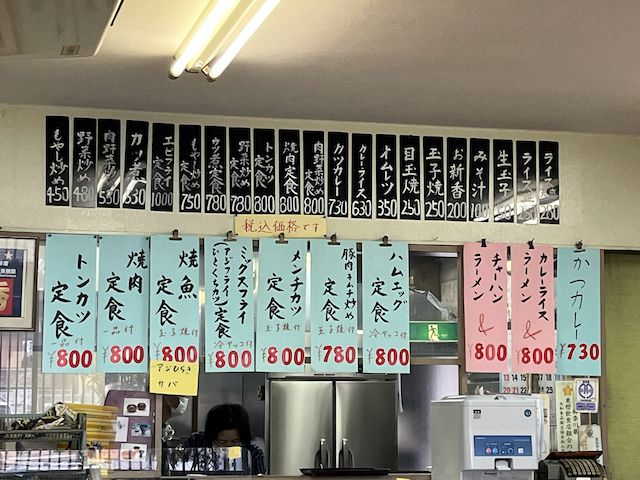 もやし炒め 450
野菜炒め 480
肉野菜炒め 550
カツ煮 630
エビフライ定食 1000
もやし炒め定食 750
カツ煮定食 780
野菜炒め定食 780
トンカツ定食 800
焼肉定食 800
肉野菜炒め定食 800
カツカレー 730
カレーライス 630
オムレツ 350
目玉焼 250
玉子焼 250
お新香 200
みそ汁 100
生玉子
ライス
ライス
税込価格です
トンカツ定食
一品付
¥800
焼肉定食
一品付
¥800
焼魚定食
玉子焼付
¥800
アジひらき
サバ
ミックスフライ
定食
冷ヤッコ付
¥800
メンチカツ
定食
玉子焼付
¥800
豚肉キムチ炒め
定食
玉子焼付
¥780
ハムエッグ
定食
冷ヤッコ付
¥800
チャーハン
&
ラーメン
¥800
カレーライス
&
ラーメン
¥800
かつカレー
¥730